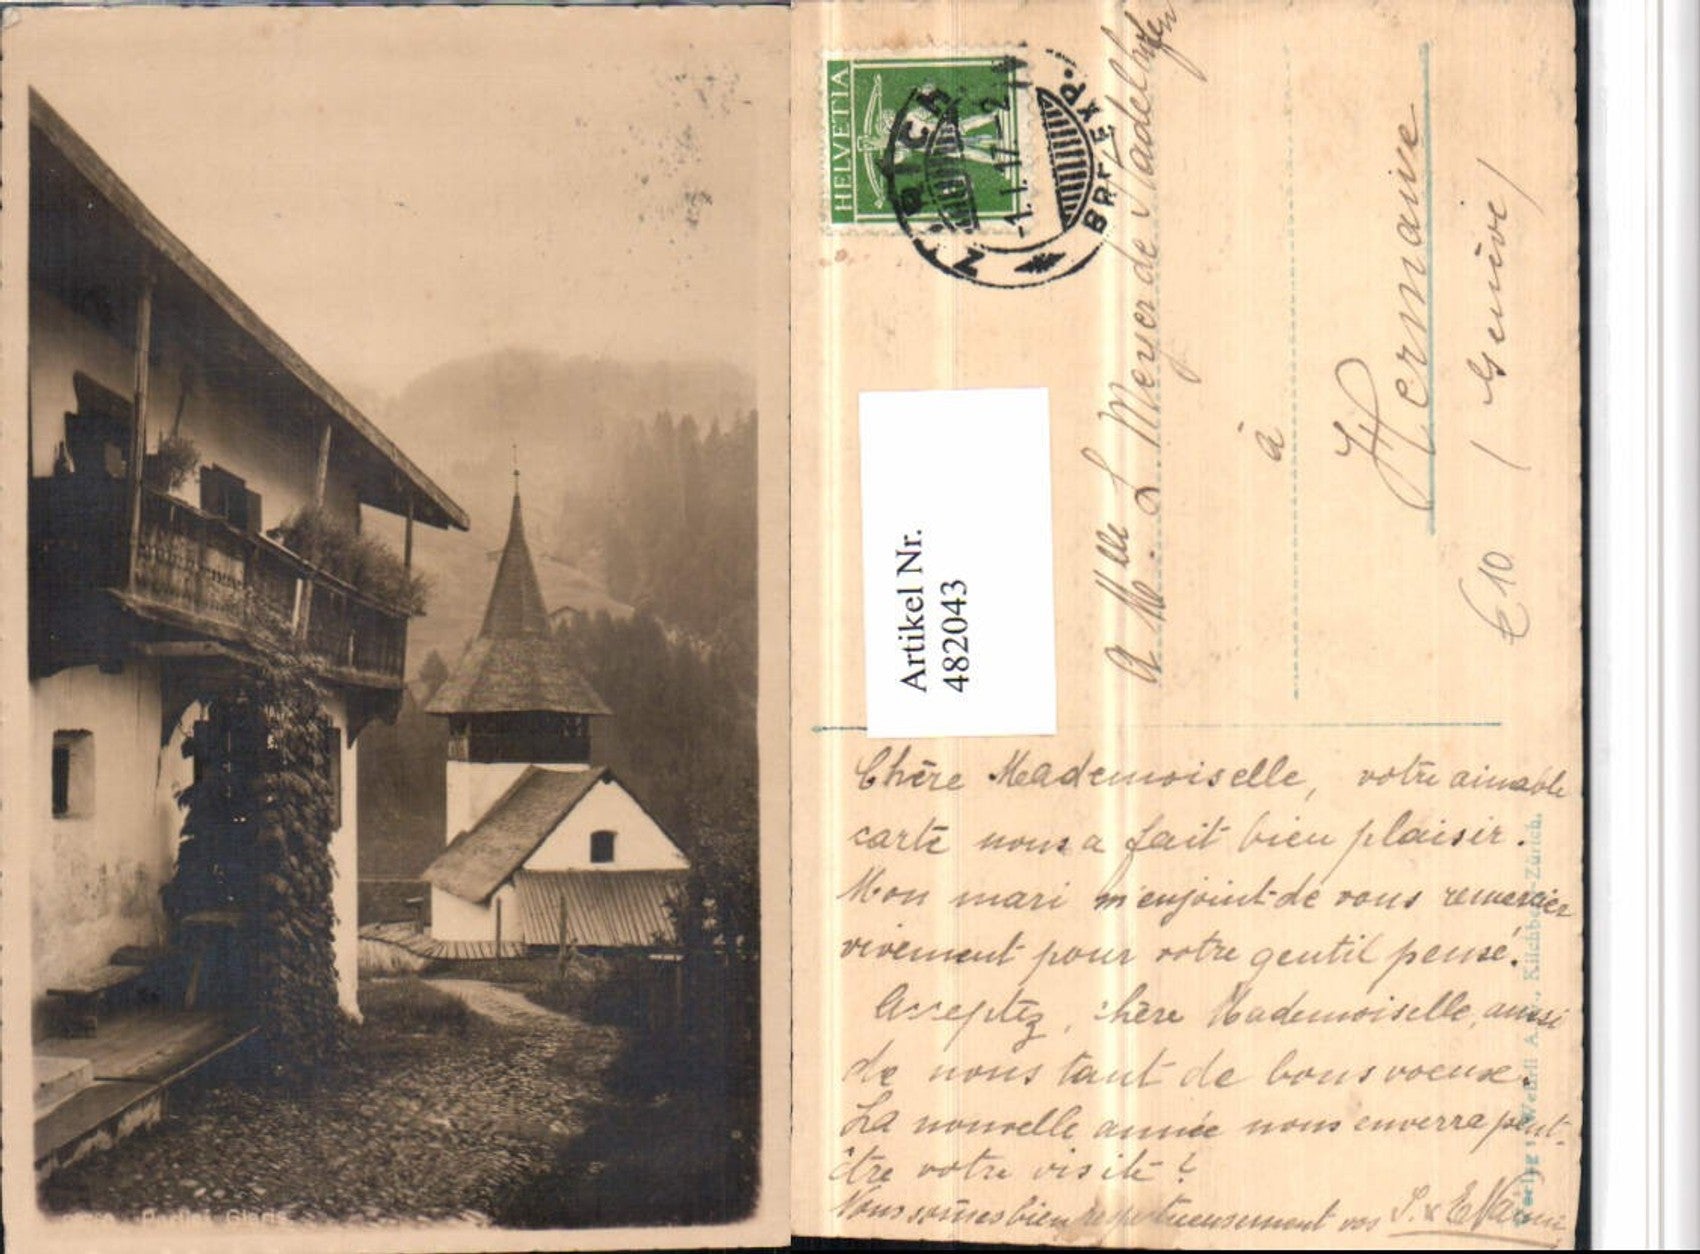 HELVETIA
ZÜRICH
-1.1.17_2
BRIEFEXP.
Artikel Nr.
482043
A Mlle. L. Meyer de Stadelhofen
à
Hermance
( Genève )
€ 10
Chère Mademoiselle, votre aimable
carte nous a fait bien plaisir.
Mon mari m'enjoint de vous remercier
vivement pour votre gentil pensé.
Acceptez, chère Mademoiselle, aussi
de nous tant de bons voeux.
La nouvelle année nous enverra peut-
être votre visite?
Nous sommes bien respectueusement vos S. & E.
Verlag Wehrli A.-G., Kilchberg-Zürich.
Glaris